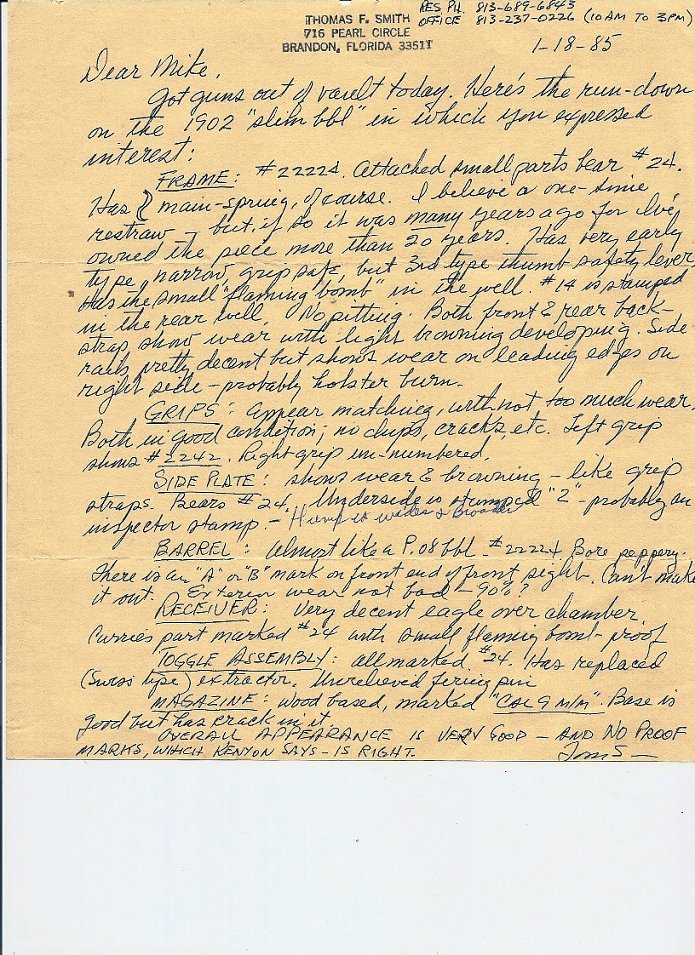 RES. PH. 813-689-6843
THOMAS F. SMITH OFFICE 813-237-0226 (10 AM TO 3PM)
716 PEARL CIRCLE
BRANDON, FLORIDA 33511
1-18-85
Dear Mike,
Got guns out of vault today. Here's the run-down
on the 1902 "slim bbl" in which you expressed
interest:
FRAME: #22224. Attached small parts bear #24.
Has main-spring, of course. I believe a one-time
restraw - but, if so it was many years ago for I've
owned the piece more than 20 years. Has very early
type, narrow grip safe, but 3rd type thumb safety lever
Has the small "flaming bomb" in the well. #14 is stamped
in the rear well. No pitting. Both front & rear back-
strap show wear with light browning developing. Side
rails pretty decent but shows wear on leading edges on
right side - probably holster burn.
GRIPS: Appear matching, with not too much wear.
Both in good condition; no chips, cracks, etc. Left grip
shows #2242. Right grip un-numbered.
SIDE PLATE: shows wear & browning - like grip
straps. Bears #24. Underside is stamped "2" - probably an
inspector stamp. - Hump is wider & Broader
BARREL: Almost like a P.08 bbl. #22224 Bore peppery.
There is an "A" or "B" mark on front end of front sight. Can't make
it out. Exterior wear not bad - 90%?
RECEIVER: Very decent eagle over chamber.
Carries part marked #24 with small flaming bomb - proof
TOGGLE ASSEMBLY: all marked #24. Has replaced
(Swiss type) extractor. Unrelieved firing pin
MAGAZINE: wood based, marked "CAL 9 M/M". Base is
good but has crack in it.
OVERALL APPEARANCE IS VERY GOOD - AND NO PROOF
MARKS, WHICH KENYON SAYS - IS RIGHT.
Tom S -